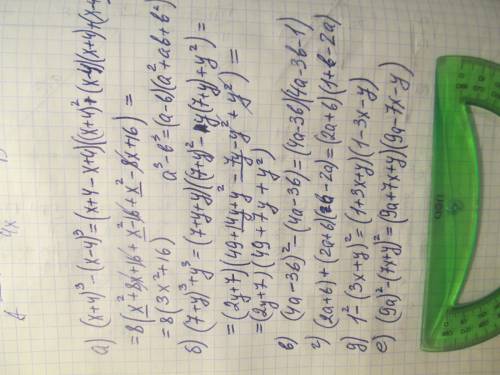 4x
а) (x+4)³-(x-4)³=(x+4-x+4)((x+4)²+(x-4)(x+4)+(x-4
=8(x²+8x+16+x²-16+x²-8x+16)=
=8(3x²+16)
a³-b³=(a-b)(a²+ab+b²)
б) (7+y)³+y³=(7+y+y)((7+y)²-y(7+y)+y²)=
=(2y+7)(49+14y+y²-7y-y²+y²)=
=(2y+7)(49+7y+y²)
в) (4a-3b)²-(4a-3b)=(4a-3b)(4a-3b-1)
г) (2a+b)+(2a+b)(b-2a)=(2a+b)(1+b-2a)
д) 1²-(3x+y)²=(1+3x+y)(1-3x-y)
е) (9a)²-(7x+y)²=(9a+7x+y)(9a-7x-y)